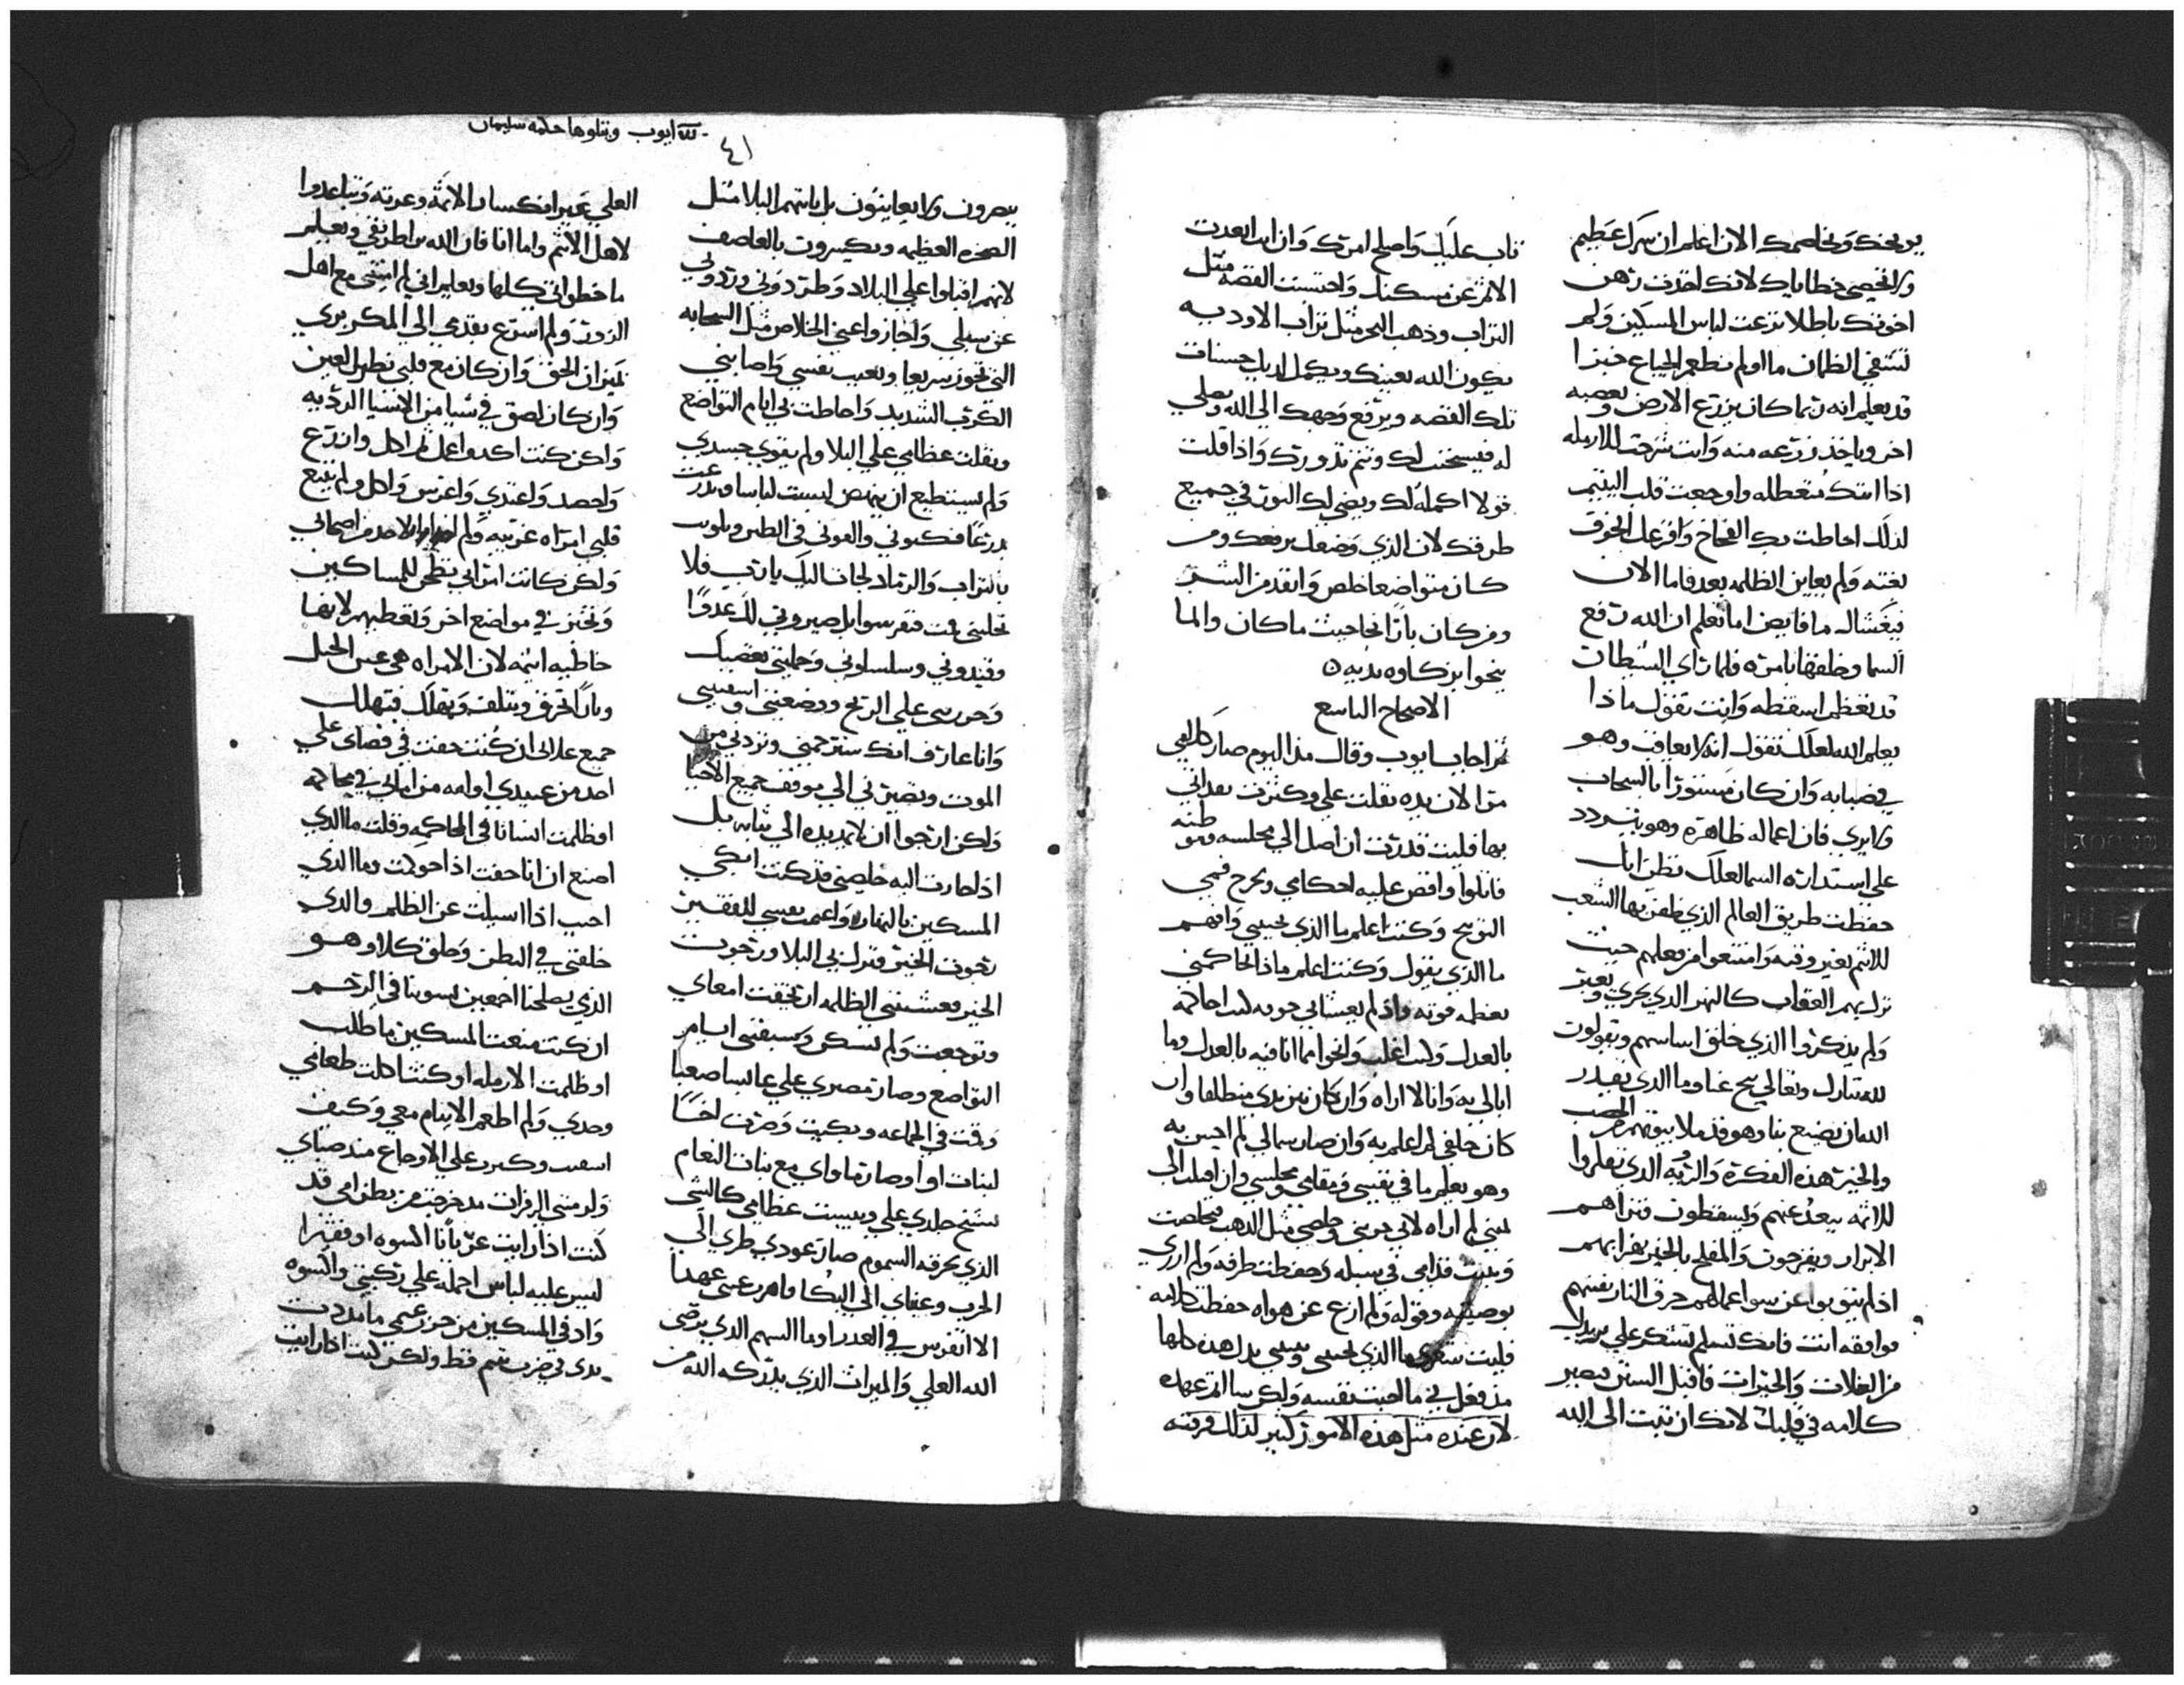 يوبخك ويخاصمك الان اعلم ان شرك عظيم
ولا تحصي خطاياك لانك اخذت رهن
اخوتك باطلا نزعت لباس المساكين ولم
تسقي الظمان ما اولم تطعم الجياع خبزا
قد يعلم انه ربما كان يزرع الارض وبعصبه
اخر وياخذ زرعه منه وانت سرحت الارمله
اذا اتتك متعطله واوجعت قلب اليتيم
لذلك احاطت بك الفخاخ وافزعك الخوف
بغته ولم يعاين الظلمه بعد فاما الان
فيغشاك ما فايض اما تعلم ان الله رفع
السما وخلقها بامره فلما راي الشيطان
قد تعظم اسقطه وانت تقول ماذا
يعلم الله لعلك تقول انه لا يعاقب وهو
في ضبابه وان كان مستورا بالسحاب
ولا يري فان اعماله ظاهره وهو يتردد
علي استداره السما لعلك تظن انك
حفظت طريق العالم الذي ظفر بها الشعب
للاثم بغير وقته وامتنعوا من فعلهم حيث
نزل بهم العقاب كالنهر الذي يجري ويعبر
ولم يذكروا الذي خلق اساسهم ويقولون
لله تبارك وتعالي تنح عنا وما الذي يقدر
الله ان يصنع بنا وهو قد ملا بيوتهم من الخصب
والخير هذه الفكره والرويه الذي تفكروا
للاثمه يبعد عنهم ويسقطون فتراهم
الابرار ويفرحون والمفلح بالخير يهزا بهم
اذ لم يتوبوا عن سو اعمالهم حرق النار بقيتهم
فوافقه انت فانك تسلم تشكر علي يديك
من الغلات والخيرات فاقبل السنن فيصير
كلامه في قلبك لانك ان تبت الي الله
تاب عليك واصلح امرك وان انت ابعدت
الاثم عن مسكنك واحتسبت الفضه مثل
التراب وذهب البحر مثل تراب الاوديه
يكون الله يعينك ويكمل لديك حسنات
تلك الفضه ويرفع وجهك الي الله وتصلي
له فيستجيب لك وتتم نذورك واذا قلت
قولا اكمله لك ويضي لك النور في جميع
طرقك لان الذي وضعك يرفعك ومن
كان متواضعا خلص وانقذ من الشر
ومن كان بارا نجا حيث ما كان وانما
ينجوا بزكاوه يديه
الاصحاح التاسع
ثم اجاب ايوب وقال منذ اليوم صار كلامي
مرا لان يده ثقلت علي وكثرت تعداني
بها فليت قدرت ان اصل الي مجلسه وهو طيه
فاتلوا واقص عليه احكامي ويخرج فمي
التوبيخ وكنت اعلم ما الذي يجيبني وافهم
ما الذي يقول وكنت اعلم ماذا يحاكمني
بعظمه قوته
بالعدل ولست اغلب وانجوا مما انا فيه بالعدل وما
ابالي به وانا لا اراه وان كان بين يدي منطلقا وان
كان خلفي لم اعلم به وان صار شمالي لم احس به
وهو يعلم ما في نفسي ومقامي ومجلسي وان اقبل الي
يميني لم اراه لانه جربني وخلصني مثل الذهب فخلصت
وثبت قدامي في سبيله وحفظت طرقه ولم ازري
بوصيته وقوله ولم ازغ عن هواه حفظت كلامه
فليت شعري ما الذي يجيبني بدل هذه كلها
مذ فعل بي ما احبت نفسه ولكن سالم عهده
لان عنده مثل هذه الامور كثير لذلك فرقته
لله ايوب ويتلوها حكمه سليمان
٤١
يبصرون ولا يعاينون بل ياتيهم البلا مثل
الصخره العظيمه ويكسرون بالعاصف
لانهم اقبلوا علي البلاد وطردوني وردوني
عن سبيلي واجازوا عني الخلاص مثل السحابه
التي تجوز سريعا وتعبت نفسي واصابني
الكرب الشديد واحاطت بي ايام التواضع
وثقلت عظامي علي البلا ولم يقوي جسدي
ولم يستطيع ان ينهض لبست لباسا وتدرعت
درعا فكبوني والقوني في الطين وبلوت
بالتراب والرماد لجات اليك يا رب فلا
تجلبني قمت فتفرسوا بل صيروني لك عدوا
وقيدوني وسلسلوني وحملتني بغضبك
وحزرتني علي الريح ووضعتني واسقيتني
وانا عارف انك ستر حمني وتردني من
الموت وتصيرني الي موقف جميع الاحيا
ولكن ارجوا ان لا تمد يده الي ثيابه بل
اذ لصارت اليه خلصني قد كنت ابكي
المسكين بالنهار واغممت نفسي للفقير
رجوت الخير فنزل بي البلا ورجوت
الخير فغشيتني الظلمه ارتجفت امعاي
وتوجعت ولم تسكن وسبقتني ايام
التواضع وصار مصيري علي عابسا صعبا
وقفت في الجماعه وبكيت وصرت اخا
لبنات اوا وصار ماواي مع بنات النعام
تشنج جلدي علي ويبست عظامي كالشي
الذي يحرقه السموم صار عودي طري الي
الحرب وعيناي الي البكا عهدا
الا اتفرس في العدرا وما السهم الذي يرضي
الله العلي والميراث الذي يدركه الله من
العلي غير انكسار الاثمه وعرته وتباعدوا
لاهل الاثم واما انا فان الله يراطرقي ويعلم
ما خطواتي كلها ويعلم اني لم امشي مع اهل
الزور ولم اسرع بقدمي الي المكر بري
بميزان الحق وان كان مع قلبي نظر العين
وان كان لصق في شيا من الاشيا الرديه
ولكن كنت اكد واعمل ثم اكل وازرع
واحصد واغتدي واغرس واكل ولم تتبع
قلبي امراه غريبه ولم لاحد من اصحابي
ولكن كانت امراتي تطحن للمساكين
وتخبز في مواضع اخر وتعطيهم لانها
خاطيه اثيمه لان الامراه هي عين الحبل
ونارا تحرق وتتلف وتهلك فتهلك
جميع غلالي ان كنت حفت في قضاي علي
احد من عبيدي او امه من اماي في محاكمه
او ظلمت انسانا في المحاكمه وقلت ما الذي
اصنع ان انا حفت اذا حوكمت وما الذي
اجيب اذا اسيلت عن الظلم والذي
خلقني في البطن وخلق كلا وهو
الذي يصلحنا اجمعين يسوينا في الرحم
ان كنت منعت المسكين ما طلب
او ظلمت الارمله او كنت اكلت طعامي
وحدي ولم اطعم الايتام معي وكيف
اسفت وكبرت علي الاوجاع منذ صباي
ولزمتني الزفرات مذ خرجت من بطن امي قد
كنت اذا رايت عريانا اكسوه او فقيرا
ليس عليه لباس احمله علي ركبتي واكسوه
وادفي المسكين من جز غنمي ما مددت
يدي في ضرب يتيم قط ولكن كنت اذا رايت